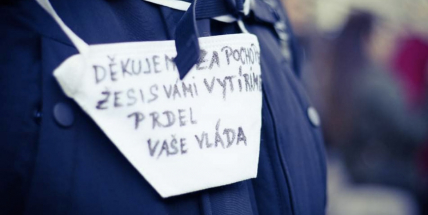 DĚKUJEM ZA POCHO
ŽE SI S VÁMI VYTÍRÁ
PRDEL
VAŠE VLÁDA